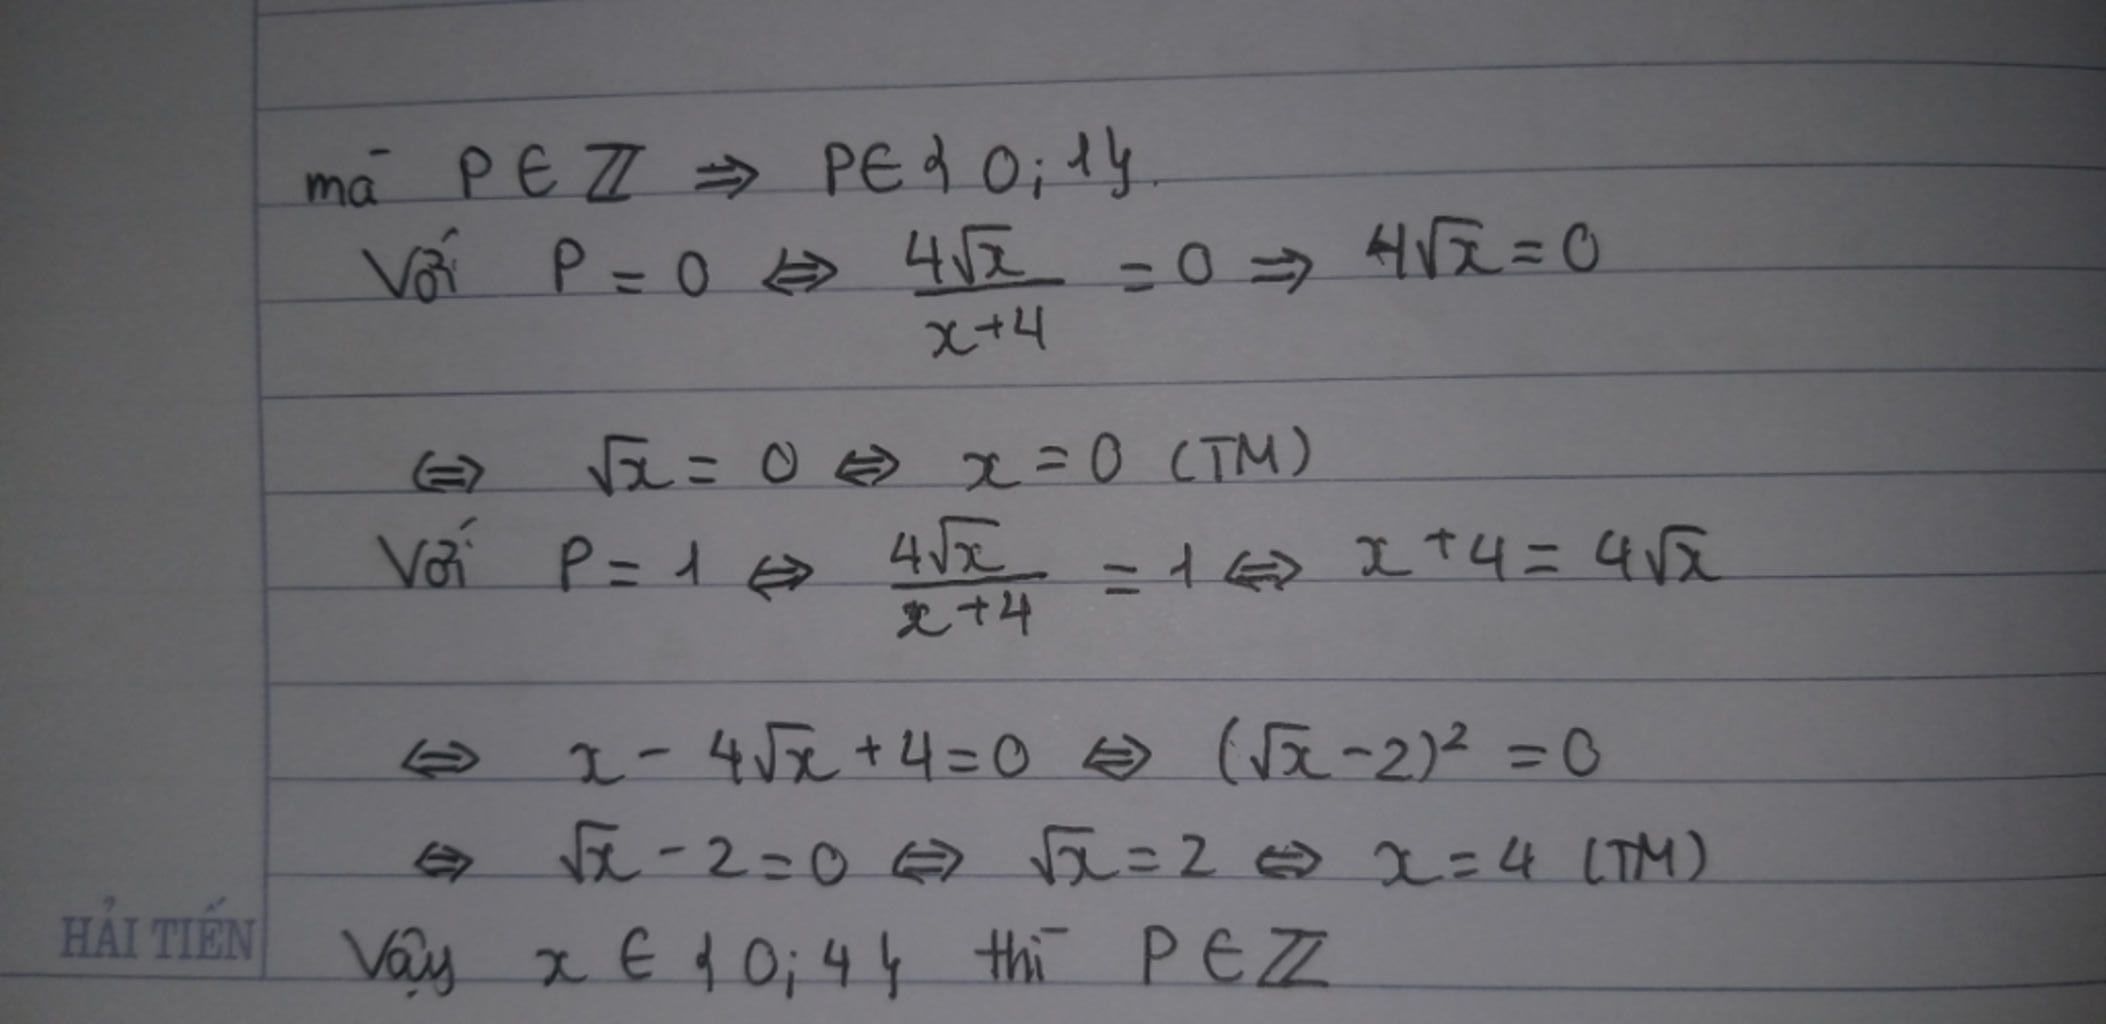 mà P ∈ ℤ ⇒ P ∈ {0; 1}.
Với P = 0 ⇔ 4√x / x+4 = 0 ⇒ 4√x = 0
⇔ √x = 0 ⇔ x = 0 (TM)
Với P = 1 ⇔ 4√x / x+4 = 1 ⇔ x + 4 = 4√x
⇔ x - 4√x + 4 = 0 ⇔ (√x - 2)² = 0
⇔ √x - 2 = 0 ⇔ √x = 2 ⇔ x = 4 (TM)
HẢI TIẾN
Vậy x ∈ {0; 4} thì P ∈ ℤ